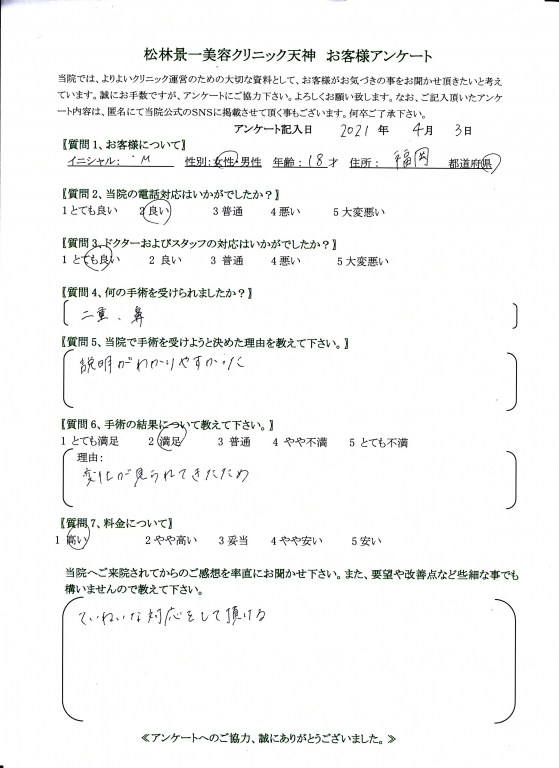 松林景一美容クリニック天神　お客様アンケート
当院では、よりよいクリニック運営のための大切な資料として、お客様がお気づきの事をお聞かせ頂きたいと考え
ています。誠にお手数ですが、アンケートにご協力下さい。よろしくお願い致します。なお、ご記入頂いたアンケ
ート内容は、匿名にて当院公式のSNSに掲載させて頂く事もございます。何卒ご了承下さい。
アンケート記入日　2021 年　4 月　3 日
〖質問 1、お客様について〗
イニシャル： M　性別：女性・男性　年齢：18 才　住所：　福岡　都道府県
〖質問 2、当院の電話対応はいかがでしたか？〗
1 とても良い　2 良い　3 普通　4 悪い　5 大変悪い
〖質問 3、ドクターおよびスタッフの対応はいかがでしたか？〗
1 とても良い　2 良い　3 普通　4 悪い　5 大変悪い
〖質問 4、何の手術を受けられましたか？〗
二重、鼻
〖質問 5、当院で手術を受けようと決めた理由を教えて下さい。〗
説明がわかりやすかった
〖質問 6、手術の結果について教えて下さい。〗
1 とても満足　2 満足　3 普通　4 やや不満　5 とても不満
理由：
変化が見られてきたため
〖質問 7、料金について〗
1 高い　2 やや高い　3 妥当　4 やや安い　5 安い
当院へご来院されてからのご感想を率直にお聞かせ下さい。また、要望や改善点など些細な事でも
構いませんので教えて下さい。
ていねいな対応をして頂ける
≪アンケートへのご協力、誠にありがとうございました。≫